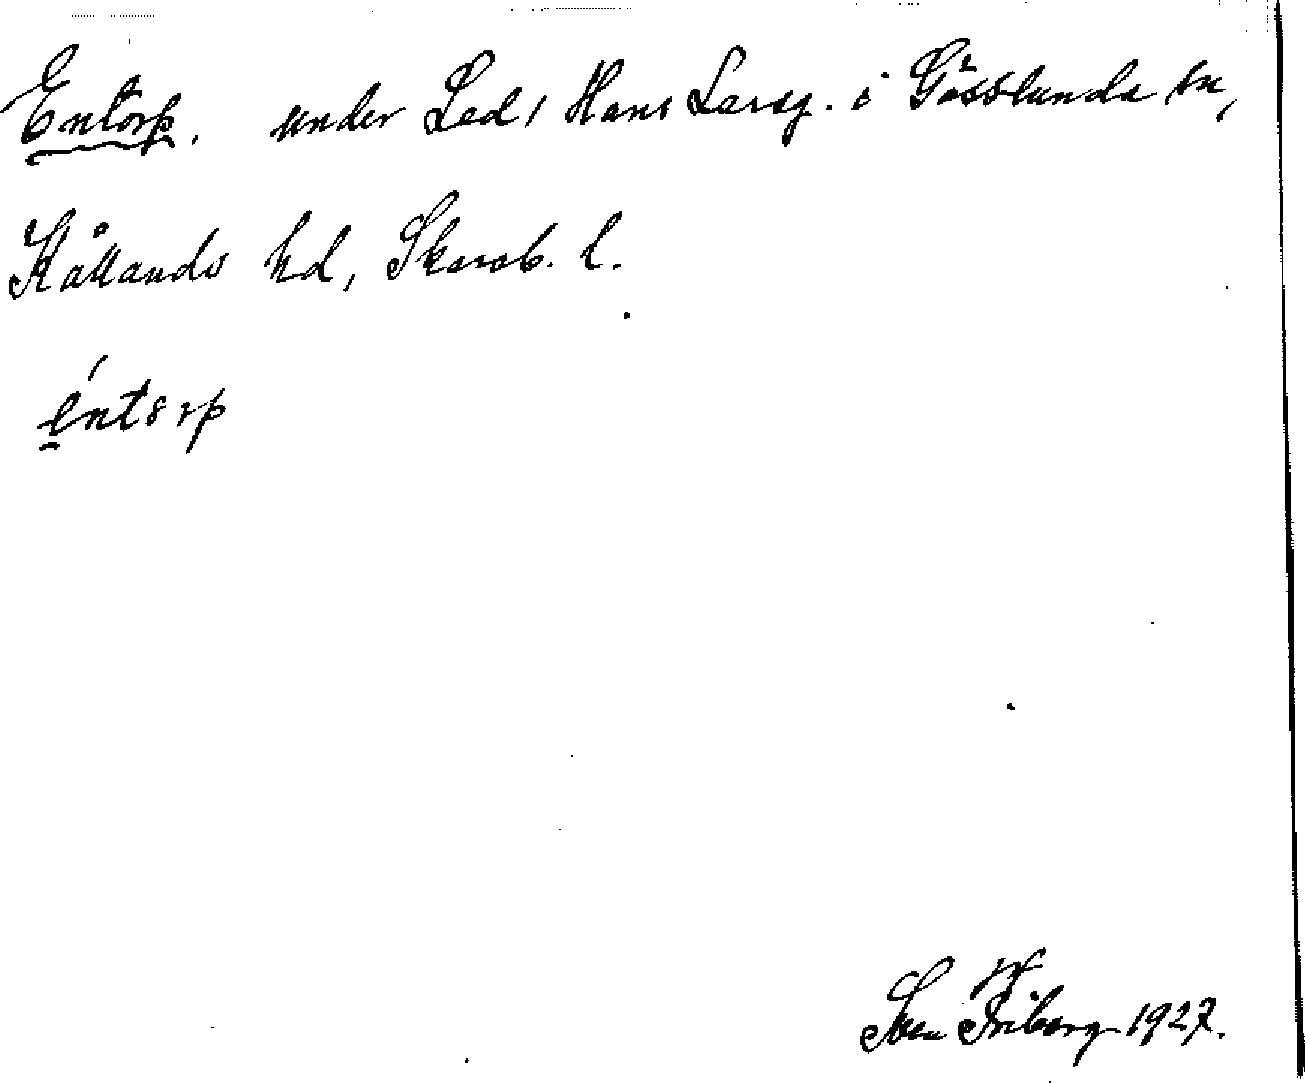 Entorp. under Led, Hans Larsg. i Gösslunda sn,
Kållands hd, Skarab. l.
éntorp
Sven Friberg 1927.